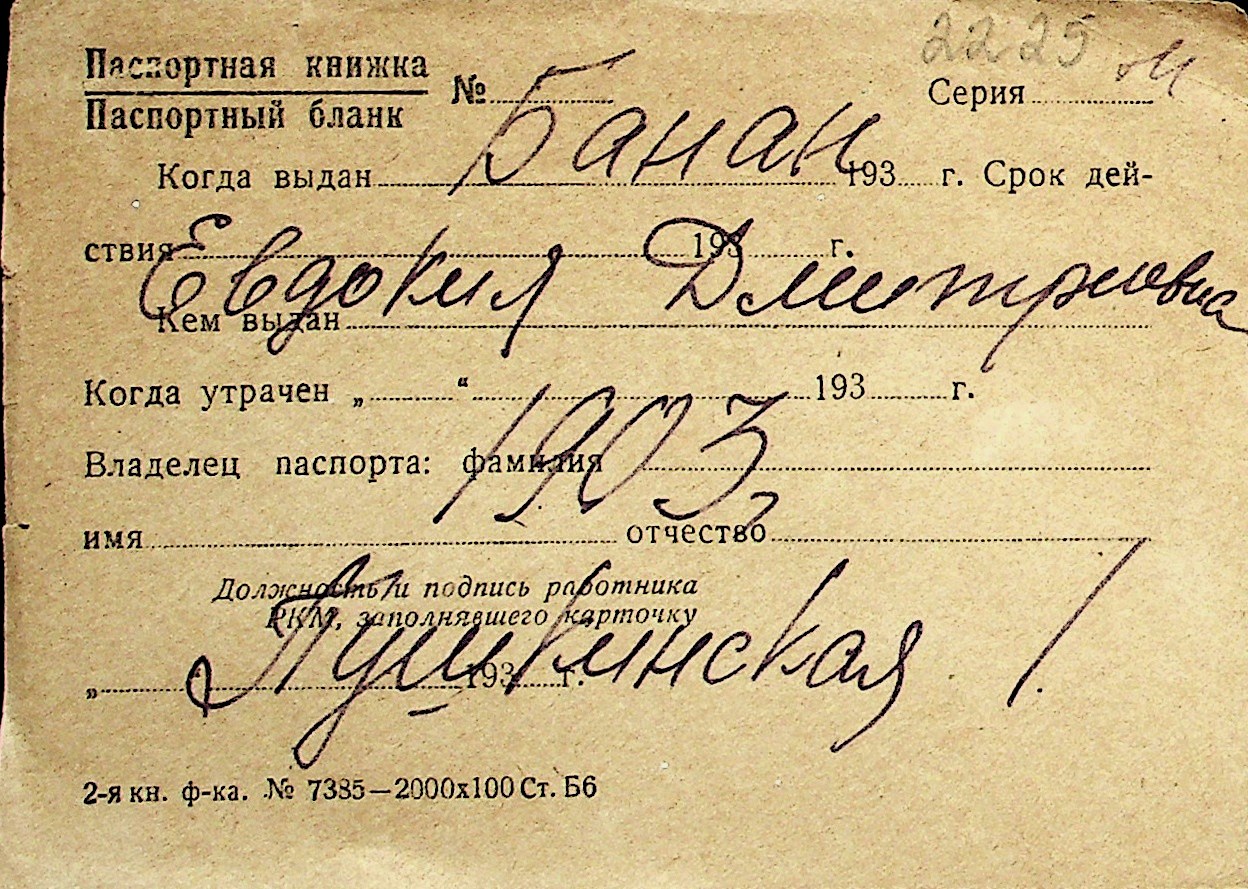 2225 м
Паспортная книжка
Паспортный бланк
№ Серия
Банан
Когда выдан 193 г. Срок дей-
ствия 193 г.
Евдокия Дмитриовна
Кем выдан
Когда утрачен „ “ 193 г.
1903
Владелец паспорта: фамилия
имя отчество
Должность и подпись работника
РКМ, заполнявшего карточку
Пушкинская 1
„ 193 г.
2-я кн. ф-ка. № 7385—2000х100 Ст. Б6